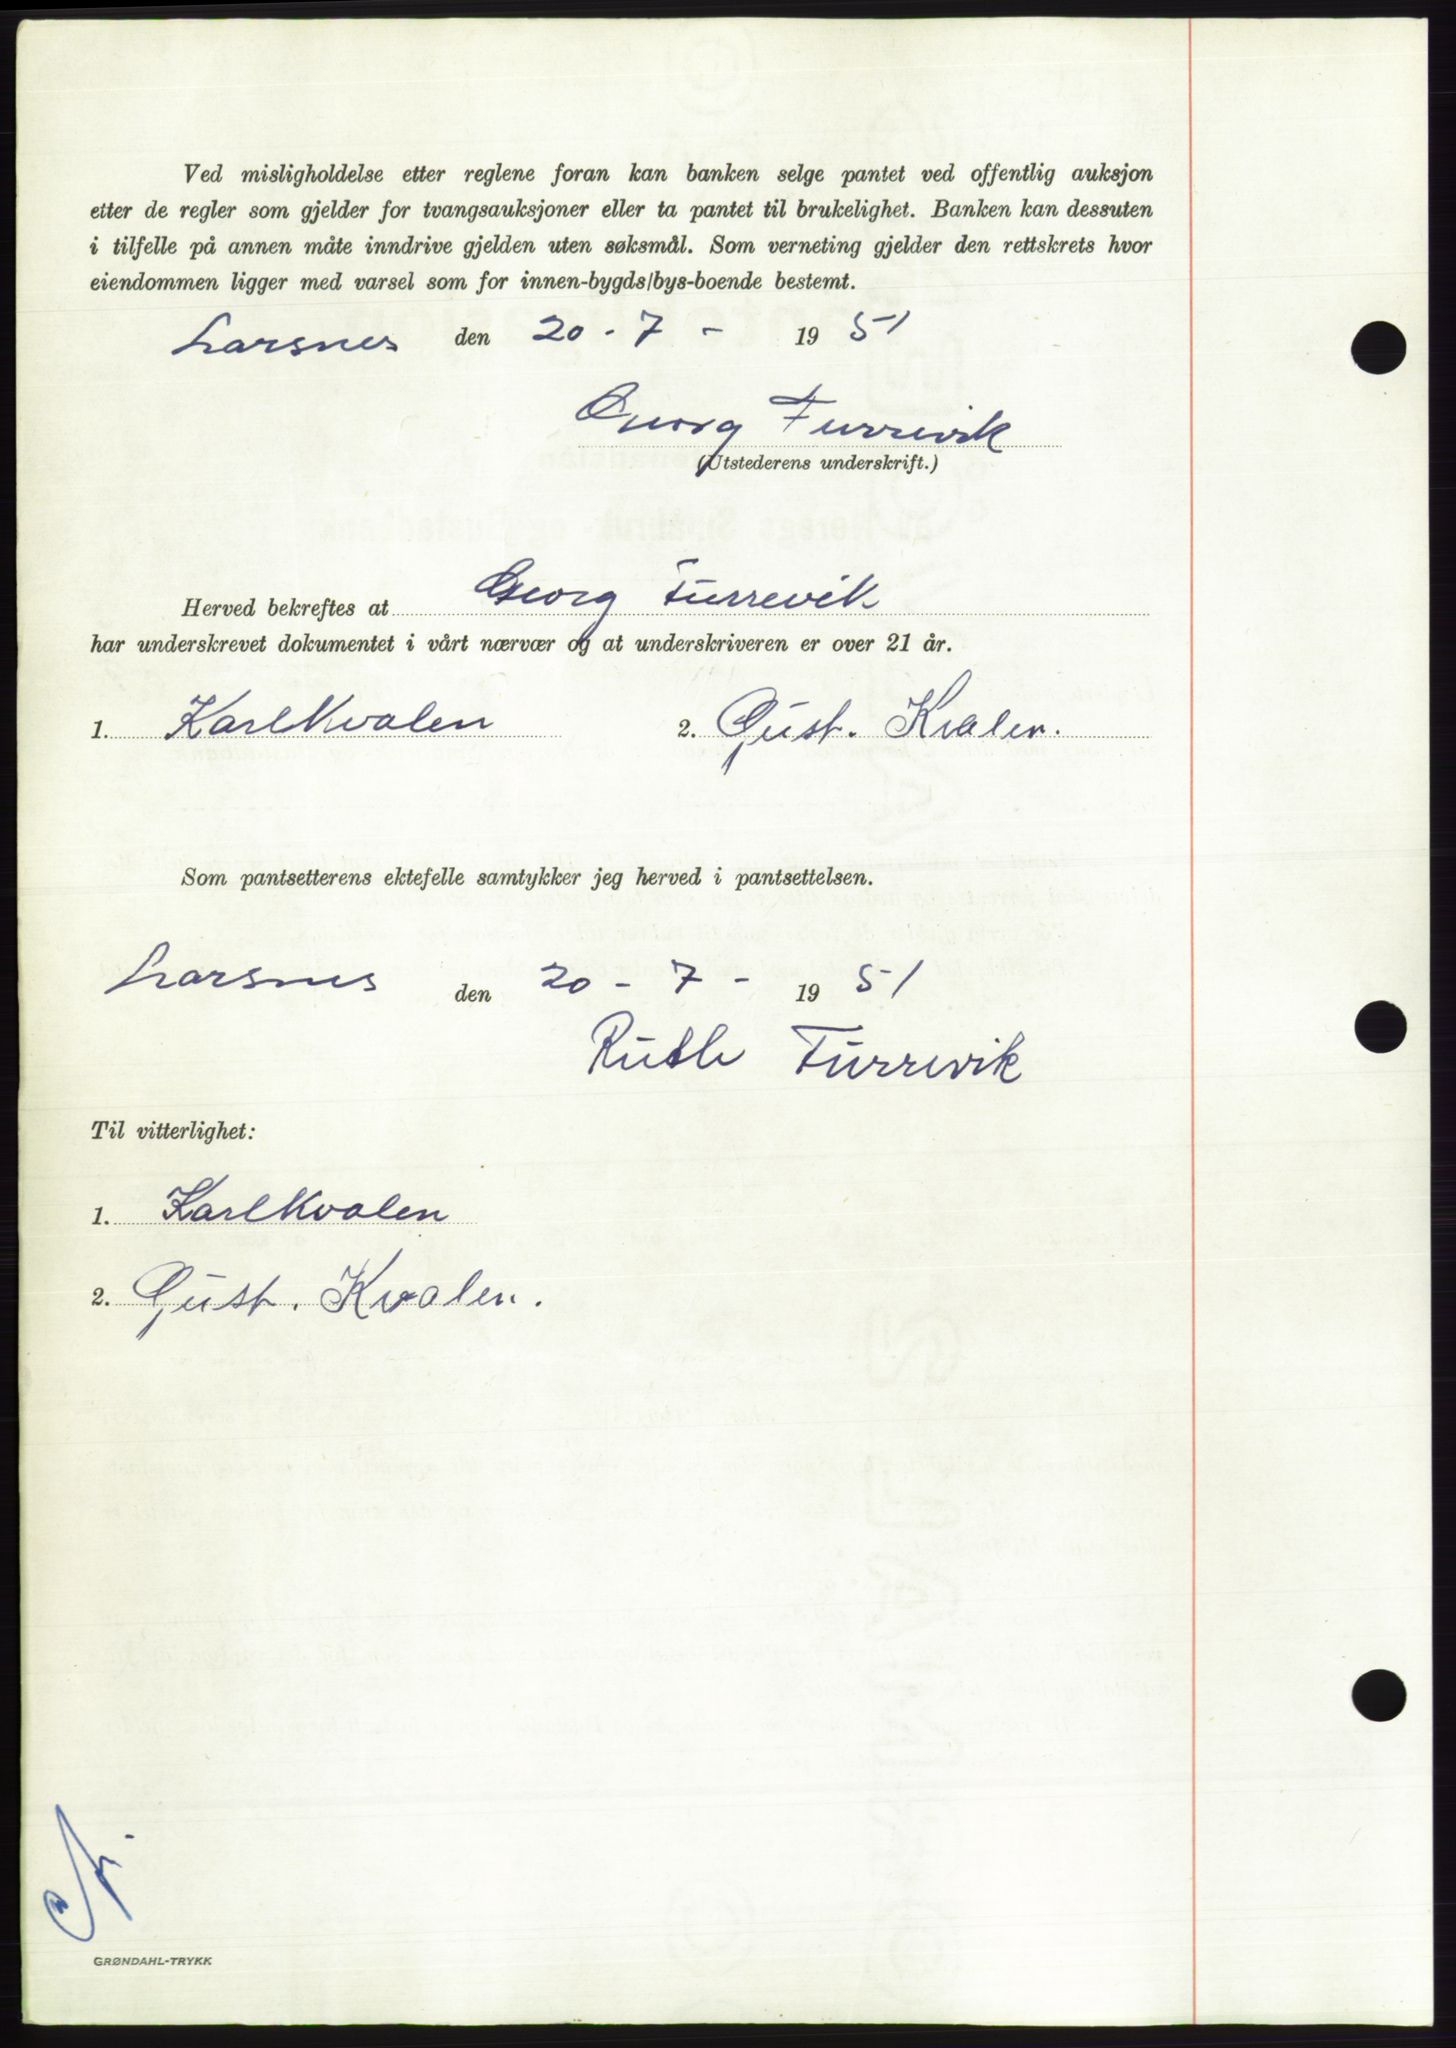 Ved misligholdelse etter reglene foran kan banken selge pantet ved offentlig auksjon
etter de regler som gjelder for tvangsauksjoner eller ta pantet til brukelighet. Banken kan dessuten
i tilfelle på annen måte inndrive gjelden uten søksmål. Som verneting gjelder den rettskrets hvor
eiendommen ligger med varsel som for innen-bygds/bys-boende bestemt.
Larsnes den 20 - 7 - 1951
Georg Furrevik
(Utstederens underskrift.)
Herved bekreftes at Georg Furrevik
har underskrevet dokumentet i vårt nærvær og at underskriveren er over 21 år.
1. Karl Kvalen 2. Gust. Kvalen.
Som pantsetterens ektefelle samtykker jeg herved i pantsettelsen.
Larsnes den 20 - 7 - 1951
Ruth Furrevik
Til vitterlighet:
1. Karl Kvalen
2. Gust. Kvalen.
GRØNDAHL-TRYKK